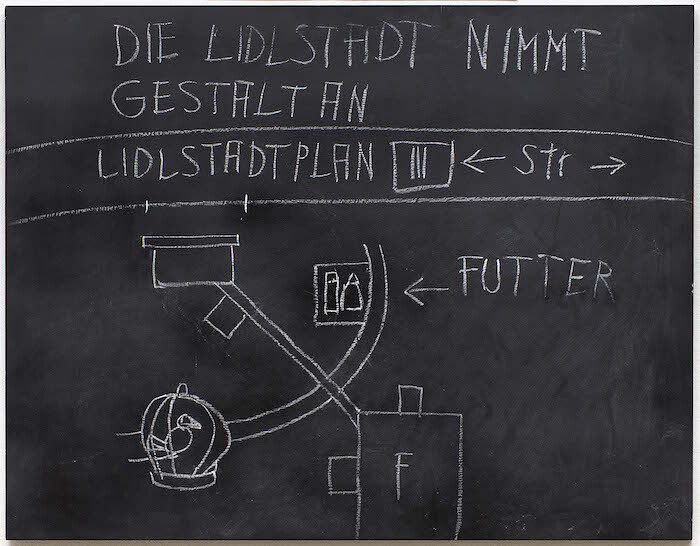 DIE LIDLSTADT NIMMT
GESTALT AN
LIDLSTADTPLAN III ← Str →
← FUTTER
F